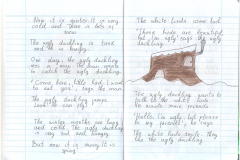 Now it is
very
cold and there is lots of
snow
The ugly duckling is tired
and he is hungry.
One day, the ugly duckling
sees a man. The man wants
to catch the ugly duckling.
"Come, here little bird. I want
to eat you", says the man.
The ugly duckling jumps.
The winter months are long
and cold. The ugly duckling
is very sad and hungry.
But now it is
spring
The white birds come back
"Those birds are beautiful
but I'm ugly" says the ugly
duckling.
The ugly duckling wants to
talk to the white birds
"Hello. I'm ugly, but please
be my friends", he says.
The white birds smile. They
like the ugly duckling